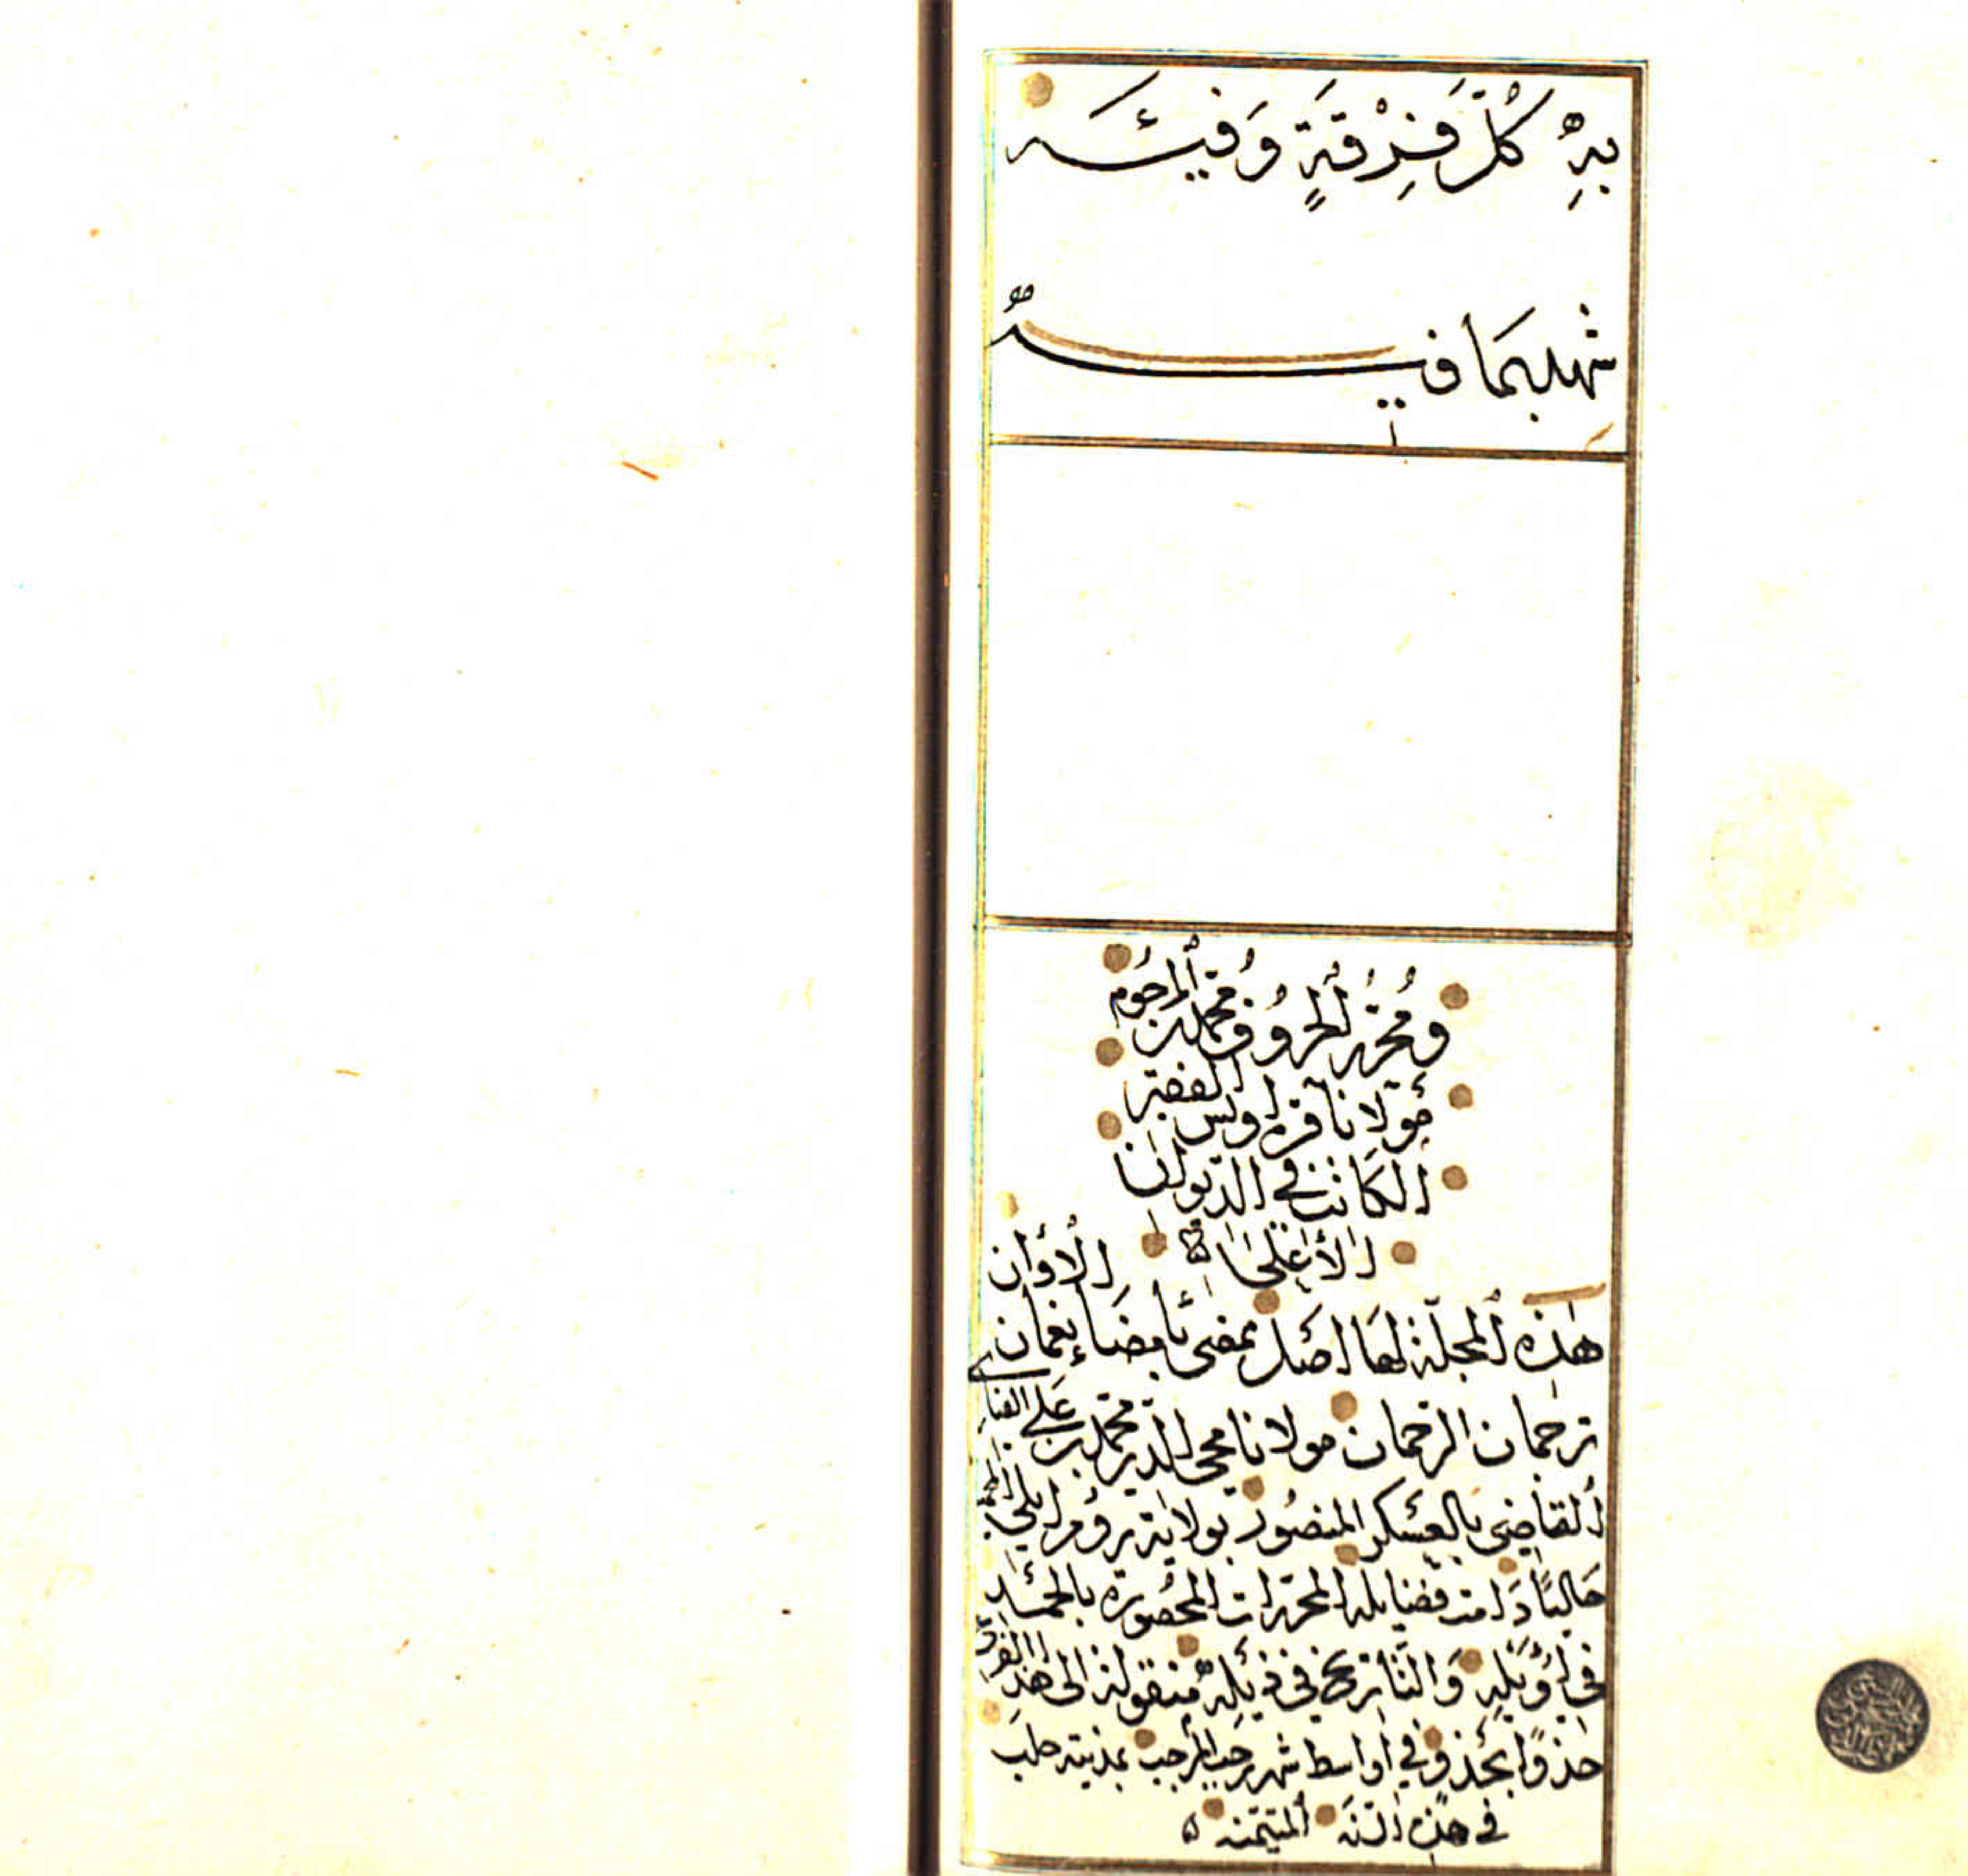 بِهِ كُلُّ فِرْقَةٍ وَفِيئَه
شهد بمَا فيهِ
وَمُحَرِّرُ الحُرُوفِ محمّد بن المرحُوم
مَوْلانا قرا اويس الفقير
الكاتب في الديوان
الأعلى
هٰذه المجلّة لها اصل ممضى بامضَاء نعمان الاوَان
ترجمان الرحمان مولانا محيى الدّين محمّد بن عَلى الفنا
القاضى بالعسكر المنصُور بولاية رُوم ايلى
حَاليًا دَامت فضايله المحرّرات المحصُورة بالحمد
فى اوَّلِه وَالتّاريخ فى ذيله منقولة الى هذا
حذوًا بحذو في اواسط شهر رجب المرجب بمدينة حلب
في هذه السّنَة المتيمّنه